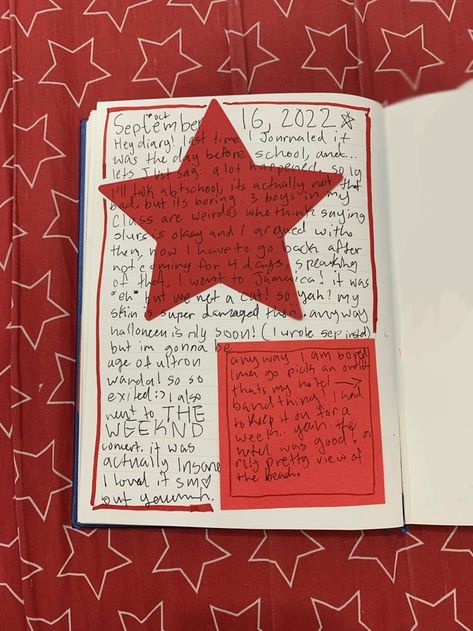 *oct
September 16, 2022 ☆
Hey diary, last time I Journaled it
was the day before school, and...
lets Just say.. a lot happened. so ig
I'll talk abt school, its actually not that
bad, but its boring. 3 boys in my
class are weirdos who think saying
slurs is okay and I argued with
them, now I have to go back after
not coming for 4 days. speaking
of that, I went to Jamaica! it was
"eh" but we met a cat! so yah! my
skin is super damaged tho. anyway
halloween is rlly soon! (I wrote sep instd)
but im gonna be
age of ultron
wanda! so so
exited :) I also
went to THE
WEEKND
concert. it was
actually Insane
I loved it sm♡
but yeuuuh.
anyway I am bored
imma go pick an outfit
thats my hotel →
band thing! I had
to keep it on for a
week. yeah. the
hotel was good!
rlly pretty view of
the beach.